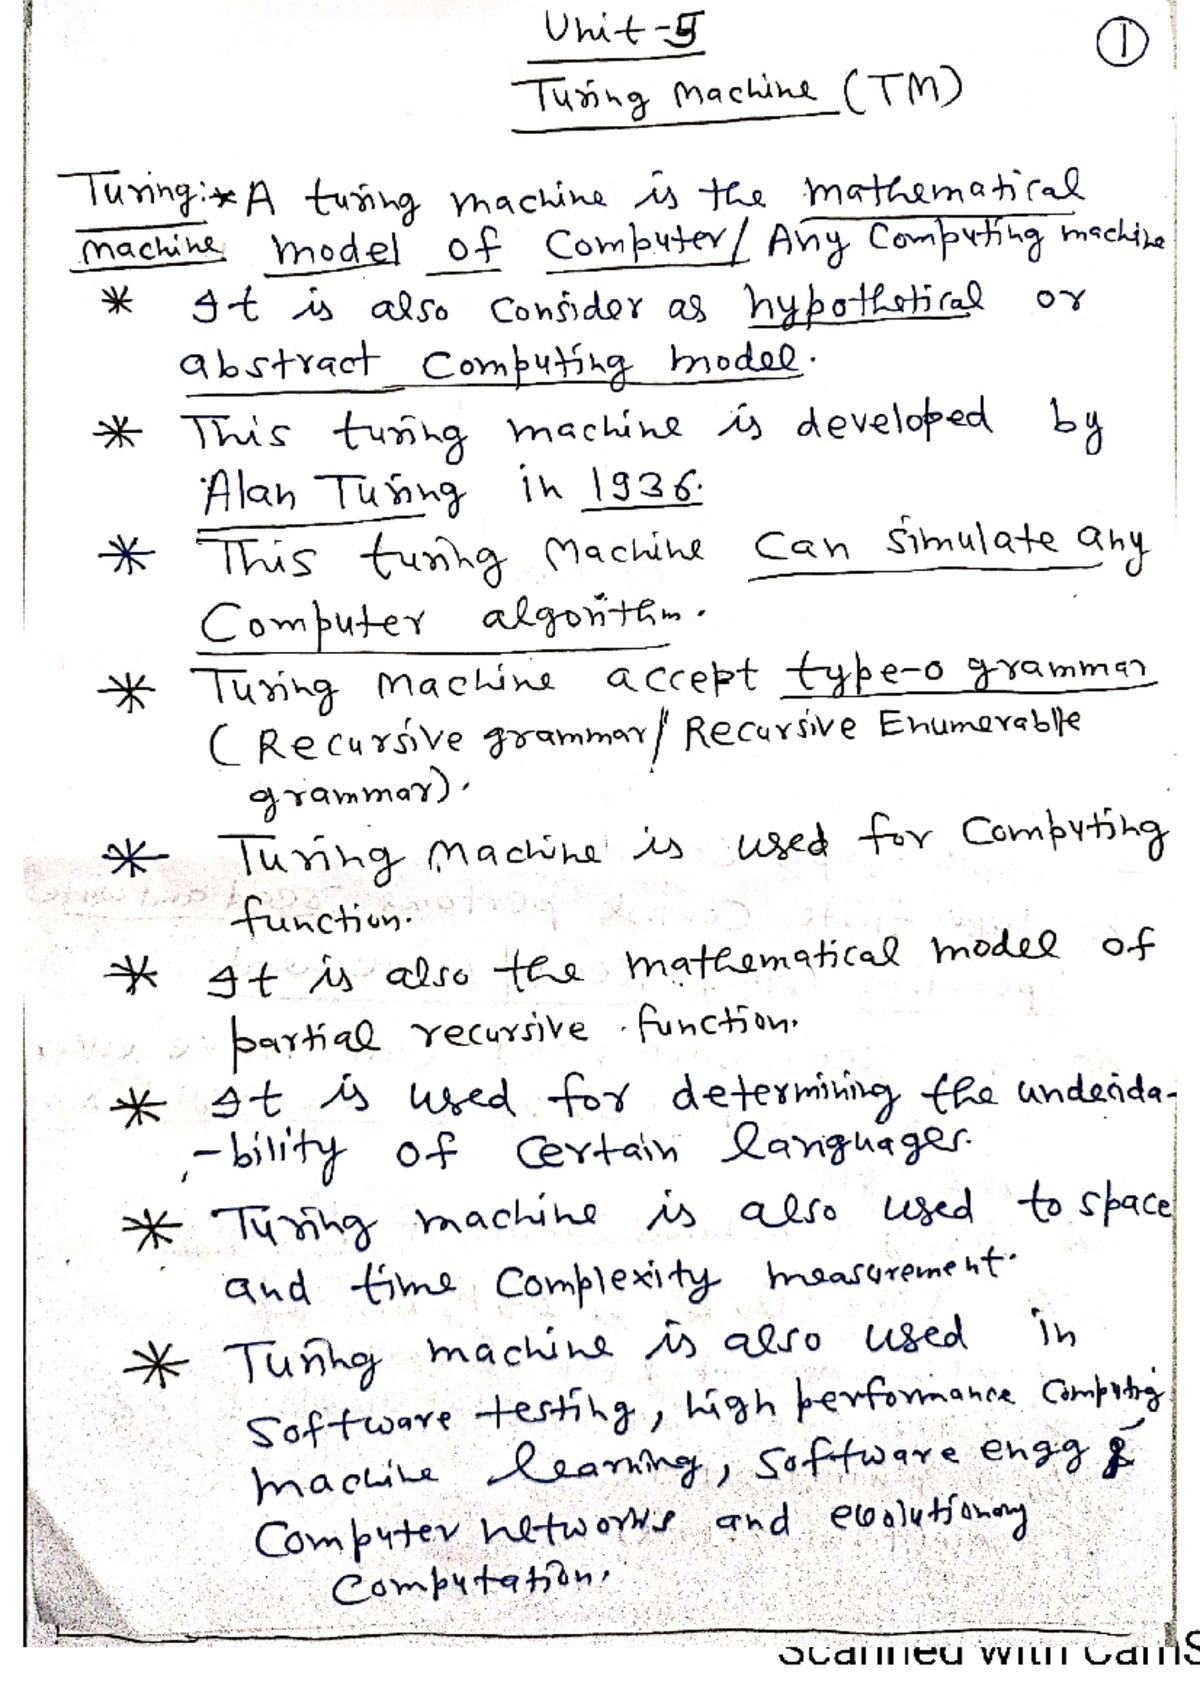 Unit-5
①
Turing Machine (TM)
Turing:* A turing machine is the mathematical
machine model of Computer/ Any Computing machine
* It is also Consider as hypothetical or
abstract Computing model.
* This turing machine is developed by
Alan Turing in 1936.
* This turing Machine Can simulate any
Computer algorithm.
* Turing Machine accept type-0 grammar
(Recursive grammar/ Recursive Enumerable
grammar).
* Turing Machine is used for Computing
function.
* It is also the mathematical model of
partial recursive function.
* It is used for determining the undecida-
-bility of Certain languages.
* Turing machine is also used to space
and time Complexity measurement.
* Turing machine is also used in
Software testing, high performance Computing
machine learning, Software engg &
Computer networks and evolutionary
Computation.
Scanned with CamS